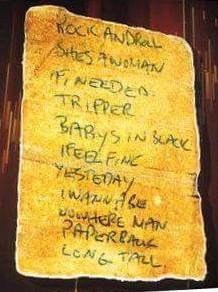 ROCK AND ROLL
SHES A WOMAN
IF I NEEDED
TRIPPER
BABYS IN BLACK
I FEEL FINE
YESTEDAY
I WANNA BE
NOWHERE MAN
PAPERBACK
LONG TALL